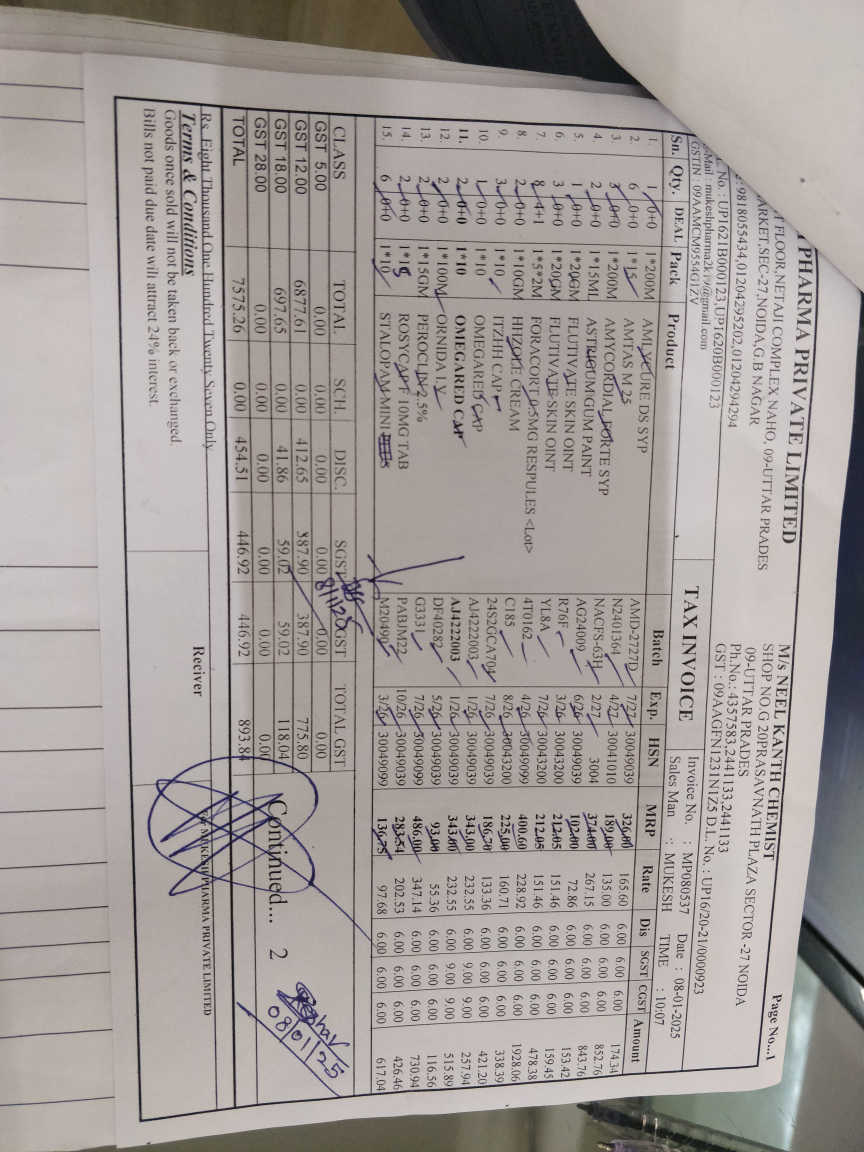 Page No...1
PHARMA PRIVATE LIMITED
T FLOOR,NETAJI COMPLEX NAHO, 09-UTTAR PRADES
ARKET,SEC-27,NOIDA,G.B NAGAR
:9818055434,01204295202,01204294294
L. No. : UP1621B000123,UP1620B000123
E-Mail : mukeshpharma2k19@gmail.com
GSTIN : 09AAMCM9554G1ZV
M/s NEEL KANTH CHEMIST
SHOP NO.G 20PRASAVNATH PLAZA SECTOR -27 NOIDA
09-UTTAR PRADES
Ph.No.: 4357583,2441133,2441133
GST : 09AAGFN1231N1Z5 D.L. No. : UP16/20-21/0000923
TAX INVOICE
Invoice No. : MP080537 Date : 08-01-2025
Sales Man : MUKESH TIME : 10:07
Sn. Qty. DEAL Pack Product Batch Exp. HSN MRP Rate Dis SGST CGST Amount
1. 1 0+0 1*200M AMLYCURE DS SYP AMD-2727D 7/27 30049039 326.00 165.60 6.00 6.00 6.00 174.34
2. 6 0+0 1*15 AMTAS M 25 N2401364 4/27 30041010 189.00 135.00 6.00 6.00 6.00 852.76
3. 3 0+0 1*200M AMYCORDIAL FORTE SYP NACFS-63H 2/27 3004 374.00 267.15 6.00 6.00 6.00 843.76
4. 2 0+0 1*15ML ASTRIGUM GUM PAINT AG24009 6/26 30049039 102.00 72.86 6.00 6.00 6.00 153.42
5. 1 0+0 1*20GM FLUTIVATE SKIN OINT R76F 3/26 30043200 212.05 151.46 6.00 6.00 6.00 159.45
6. 3 0+0 1*20GM FLUTIVATE SKIN OINT YL8A 7/26 30043200 212.05 151.46 6.00 6.00 6.00 478.38
7. 8 4+1 1*5*2M FORACORT 0.5MG RESPULES <Lot> 4T0162 4/26 30049099 400.60 228.92 6.00 6.00 6.00 1928.06
8. 2 0+0 1*10GM HHZOLE CREAM C185 8/26 30043200 225.00 160.71 6.00 6.00 6.00 338.39
9. 3 0+0 1*10 ITZHH CAP 24S2GCA704 7/26 30049039 186.70 133.36 6.00 6.00 6.00 421.20
10. 1 0+0 1*10 OMEGARED CAP AJ4222003 1/26 30049039 343.00 232.55 6.00 9.00 9.00 257.94
11. 2 0+0 1*10 OMEGARED CAP AJ4222003 1/26 30049039 343.00 232.55 6.00 9.00 9.00 515.89
12. 2 0+0 1*100M ORNIDA I.V DF40282 5/26 30049039 93.00 55.36 6.00 6.00 6.00 116.56
13. 2 0+0 1*15GM PEROCLIN 2.5% G3331 7/26 30049039 486.00 347.14 6.00 6.00 6.00 730.94
14. 2 0+0 1*15 ROSYCAP F 10MG TAB PABJM22 10/26 30049039 283.54 202.53 6.00 6.00 6.00 426.46
15. 6 0+0 1*10 STALOPAM MINI M20490 3/26 30049099 136.75 97.68 6.00 6.00 6.00 617.04
8/1/25
CLASS TOTAL SCH. DISC. SGST CGST TOTAL GST
GST 5.00 0.00 0.00 0.00 0.00 0.00 0.00
GST 12.00 6877.61 0.00 412.65 387.90 387.90 775.80
GST 18.00 697.65 0.00 41.86 59.02 59.02 118.04
GST 28.00 0.00 0.00 0.00 0.00 0.00 0.00
TOTAL 7575.26 0.00 454.51 446.92 446.92 893.84
Continued... 2
08/01/25
Rs. Eight Thousand One Hundred Twenty Seven Only
Terms & Conditions
Goods once sold will not be taken back or exchanged.
Bills not paid due date will attract 24% interest.
Reciver
For MUKESH PHARMA PRIVATE LIMITED